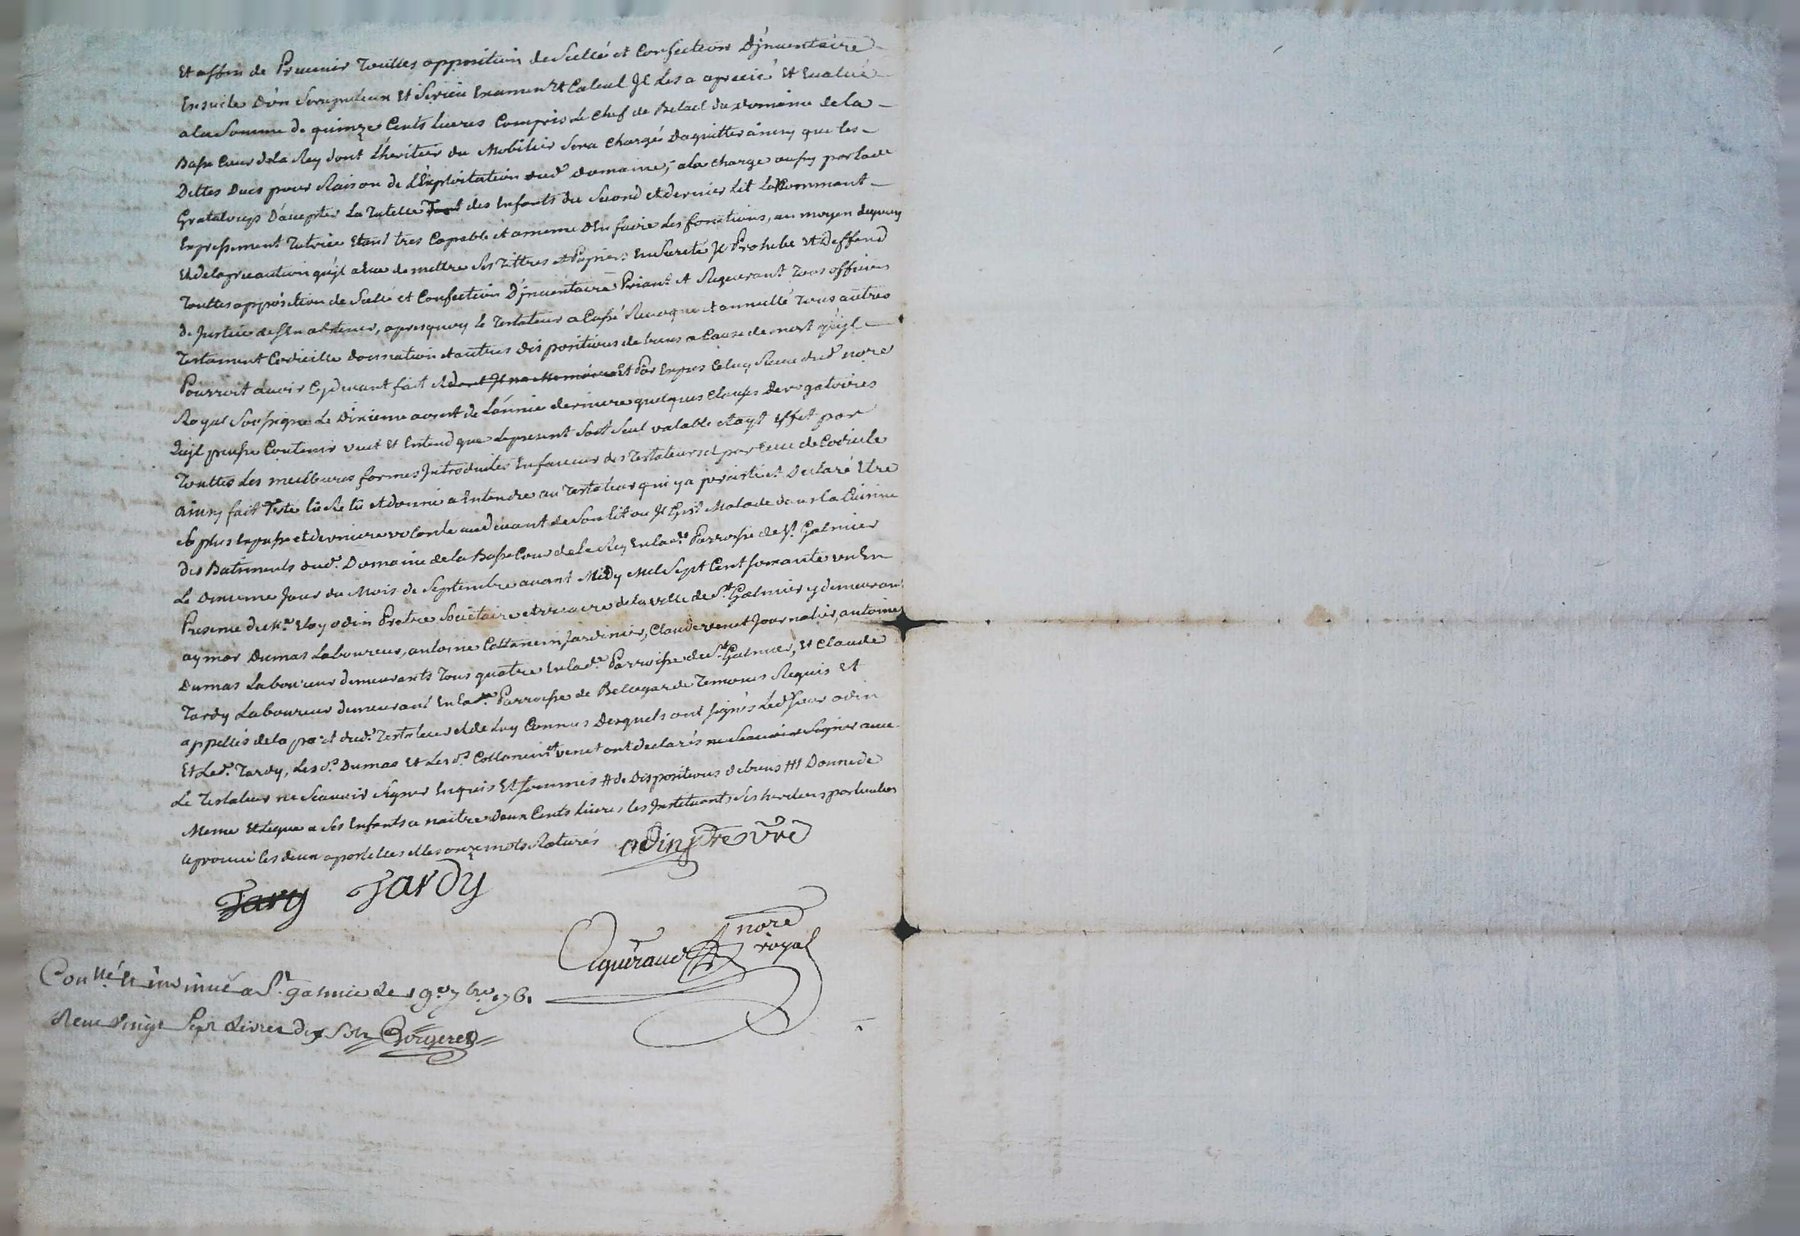 Et affin de Prevenir Touttes apposition de Scellé et Confection D'jnventaire
Ensuite D'un Scrupuleux Et Serieu Examen Et Calcul Jl Les a aprecié Et Evalué
a la Somme de quinze Cents livres Compris Le Chef de Betail du domaine de la
Basse Cour de la Rey dont L'heritier du Mobilier Sera Chargés Daquitter ainsy que les
Dettes Dues pour Raison de L'Exploitation dud. domaine, a la Charge aussy par lade
Grataloup D'accepter La Tutelle des Enfants du Second et dernier Lit La Nommant
Expressement Tutrice Etant tres Capable et a meme D'En faire les fonctions, au moyen dequoy
Et de la precaution qu'jl a Eue de mettre Ses Tittres et Papiers En Sureté Jl Prohibe et Deffend
Touttes apposition de Scellé et Confection D'jnventaire Priant et Requerant Tous officiers
de Justice de S'En abstenir, apres quoy le Testateur a Cassé Revoqué et annullé Tous autres
Testament Codicille donnation et autres dispositions de biens a Cause de mort qu'jl
Pourroit avoir Cydevant fait Et Par Exprés Celuy Receu dud. nore
Royal Soussigné Le Dixieme aoust de L'année derniere quelques Clauses derogatoires
Qu'jl puisse Contenir veut Et Entend que le present Soit Seul valable et ayt Effet par
Touttes les meilleures formes Introduites En faveur des Testateurs et par Celle de Codicile
ainsy fait Testé lû Relû et donné a Entendre au Testateur qui y a persisté et Declaré Etre
Sa plus Expresse et derniere volonté au devant de Son lit ou Jl Gist Malade dans la Cuisine
des Batiments dud. Domaine de la Basse Cour de la Rey En lad. Parroisse de St. Galmier
Le Jour du Mois de Septembre avant Midy Mil Sept Cent Soixante un En
Presence de Mre. Eloy odin Pretre Societaire et vicaire de la ville de St. Galmier y demeurant
aymar Dumas Laboureur, antoine Collanein Jardinier, Claude venet Journalier, antoine
Dumas Laboureur demeurants Tous quatre En lad. Parroisse de St. Galmier, Et Claude
Tardy Laboureur demeurant En la Parroisse de Bellegarde Temoins Requis Et
appellés de la part dud. Testateur et de Luy Connus Desquels ont Signés Led. Sieur odin
Et Led. Tardy, Les d. Dumas Et Les d. Collanein et venet ont declarés ne Scavoir Signer avec
Le Testateur ne Scavoir Signer Enquis Et Sommés # de dispositions de biens ### Donne de
Meme Et Legue a Ses Enfants a naitre deux Cents livres les Jnstituants Ses heritiers particuliers
aprouvé les deux apostilles et les onze mots Raturés odin ptre vre
Tary Tardy
nore
royal
Conllé. Et insinué a St. galmie le 19e. 7bre. 1761
Receu vingt Sept Livres dix Sols